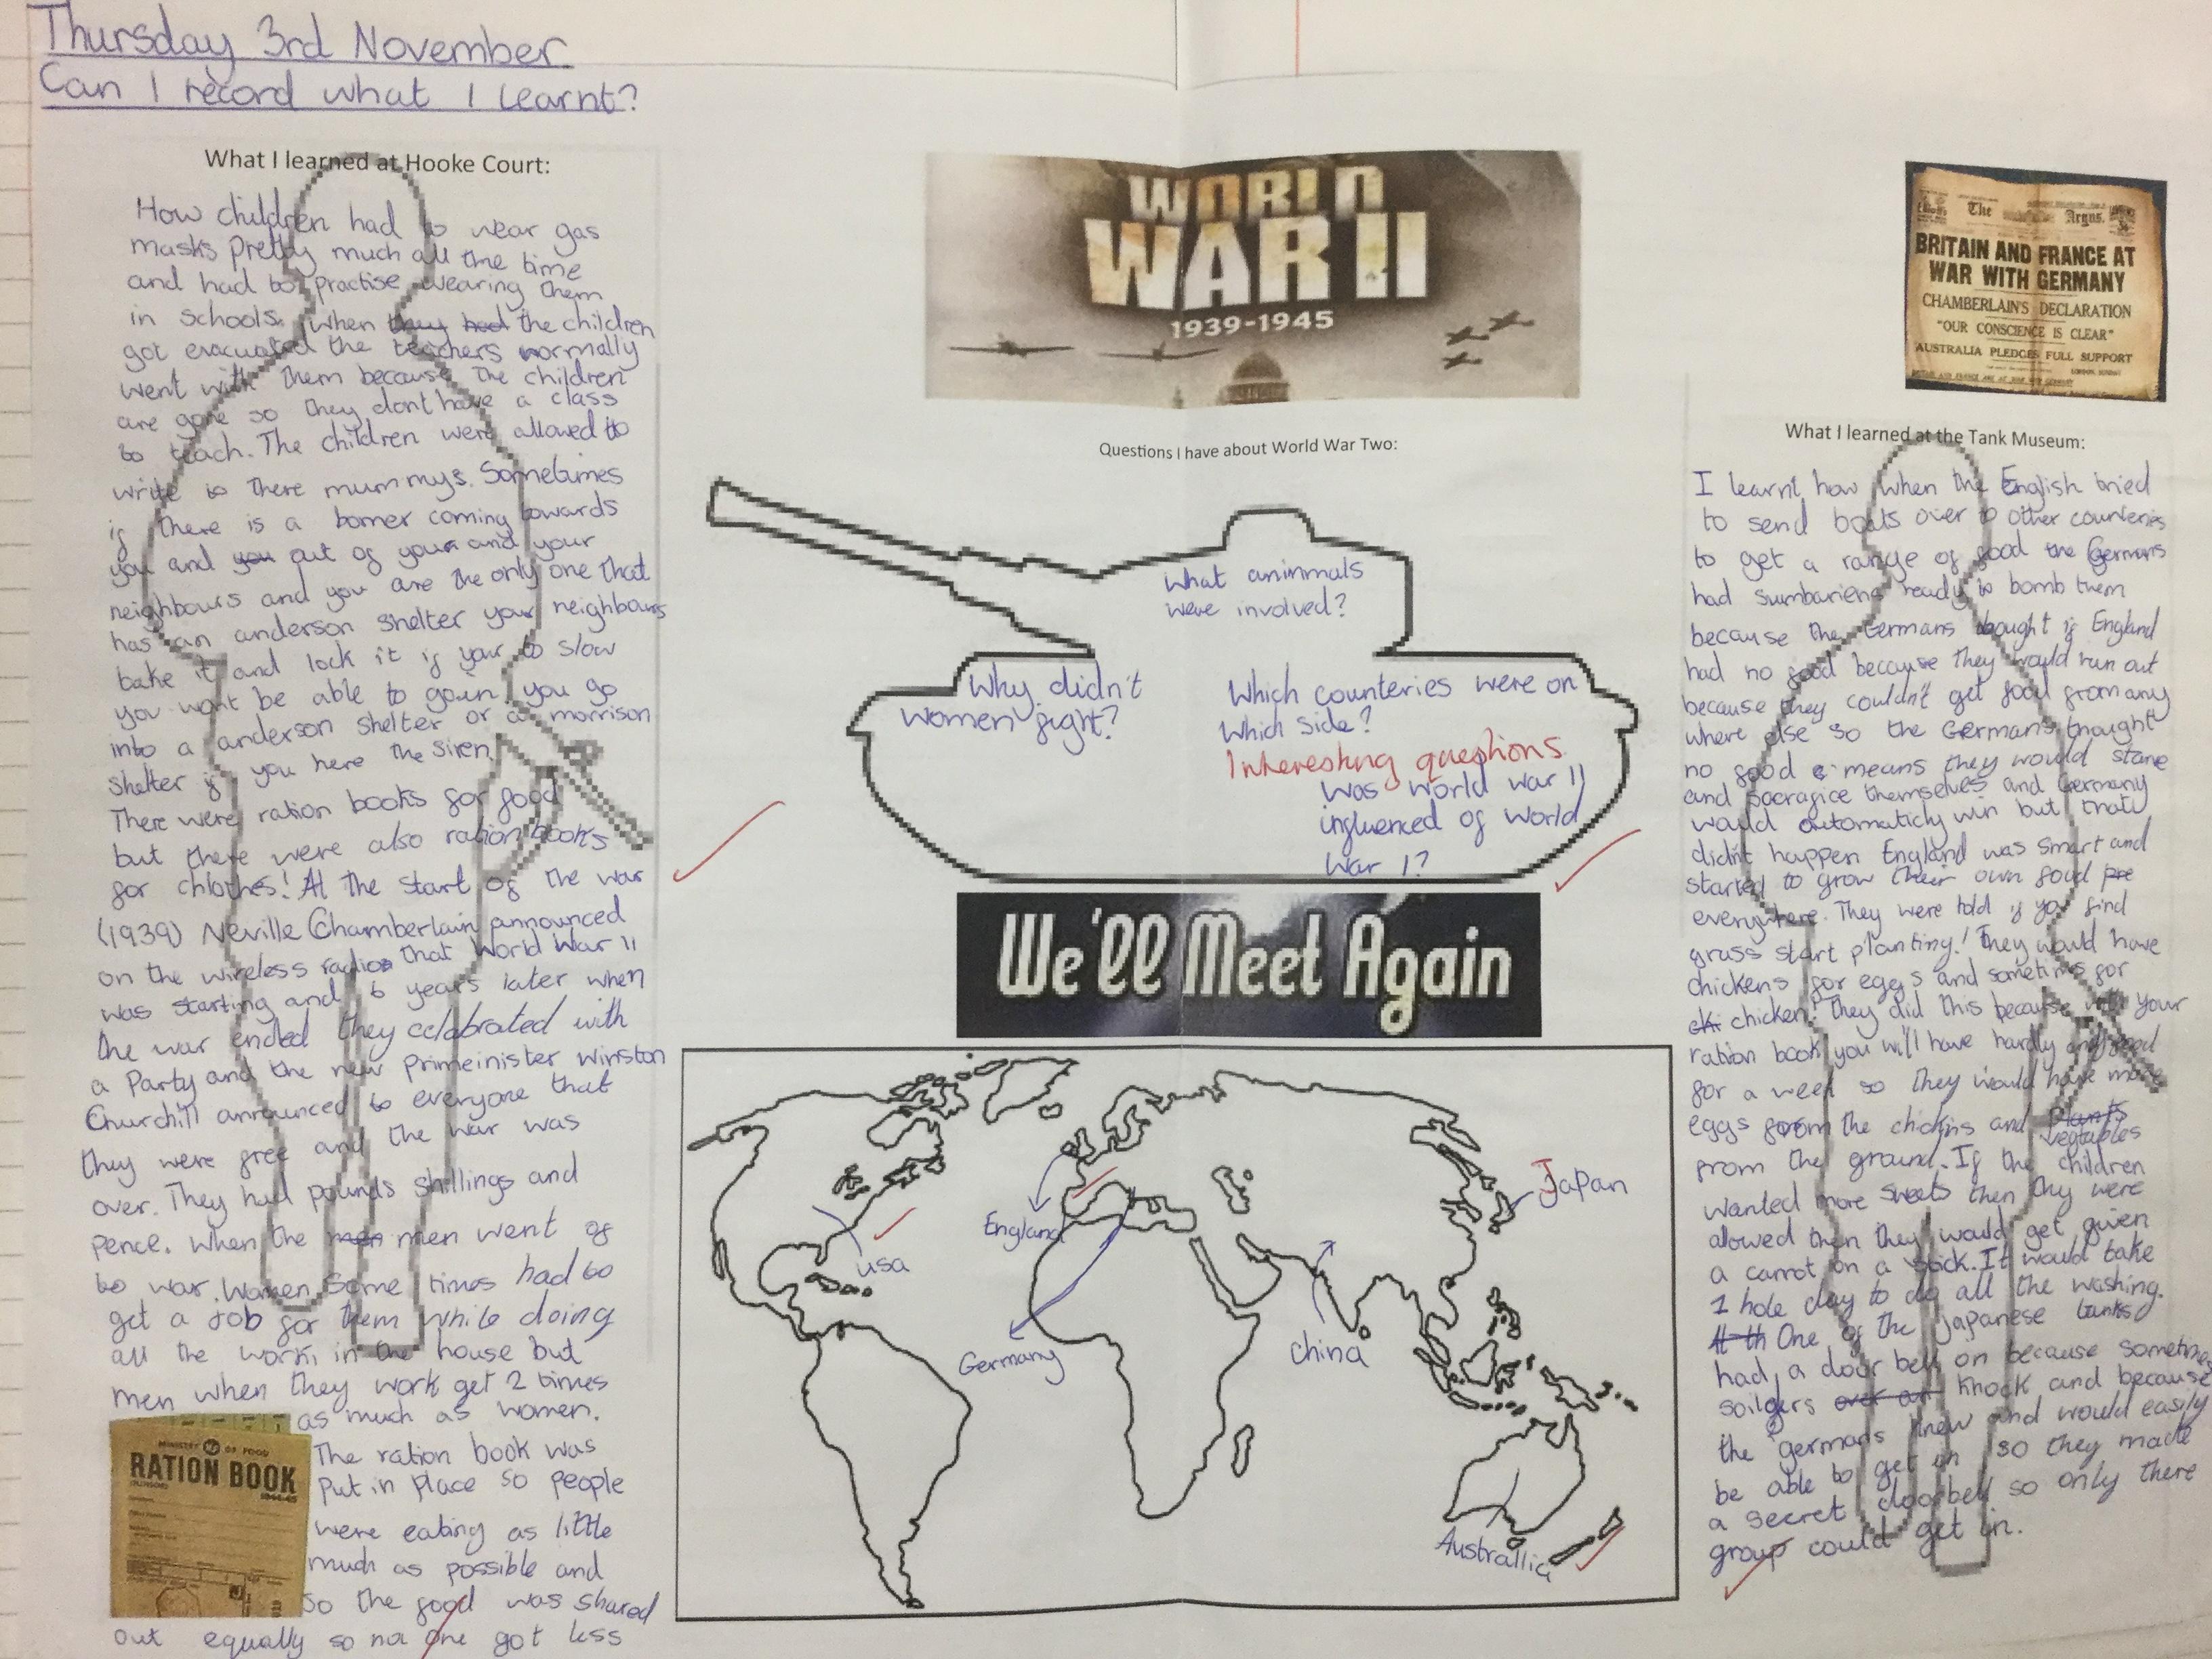 Thursday 3rd November
Can I record what I learnt?
What I learned at Hooke Court:
How children had to wear gas
masks pretty much all the time
and had to practise wearing them
in schools. When they had the children
got evacuated the teachers normally
went with them because the children
are gone so they dont have a class
to teach. The children were allowed to
write to there mummys. Sometimes
if there is a bomer coming towards
you and you out of your and your
neighbours and you are the only one that
has an anderson shelter your neighbours
take it and lock it if your to slow
you wont be able to go in, you go
into a anderson shelter or a morrison
shelter if you here the siren.
There were ration books for food
but there were also ration books
for chlothes! At the start of the war
(1939) Neville Chamberlain announced
on the wireless radio that World War II
was starting and 6 years later when
the war ended they celabrated with
a Party and the new primeinister Winston
Churchill announced to everyone that
they were free and the war was
over. They had pounds shillings and
pence. When the men men went of
to war. Women Some times had to
get a Job for them while doing
all the work in the house but
men when they work get 2 times
as much as women.
The ration book was
put in place so people
were eating as little
much as possible and
so the food was shared
out equally so no one got less
MINISTRY OF FOOD
RATION BOOK
WORLD
WAR II
1939-1945
Questions I have about World War Two:
What aninmals
were involved?
Why didn't
women fight?
Which counteries were on
which side?
Interesting questions
Was World War II
influenced of World
War 1?
We'll Meet Again
England
usa
Germany
China
Japan
Australlia
The Argus.
BRITAIN AND FRANCE AT
WAR WITH GERMANY
CHAMBERLAIN'S DECLARATION
"OUR CONSCIENCE IS CLEAR"
AUSTRALIA PLEDGES FULL SUPPORT
What I learned at the Tank Museum:
I learnt how when the English tried
to send boats over to other counteries
to get a range of food the Germans
had sumbariens ready to bomb them
because the Germans thought if England
had no food because they would run out
because they couldn't get food from any
where else so the Germans thought
no food means they would starve
and sacrafice themselves and Germany
would automaticly win but that
didn't happen England was smart and
started to grow their own food pre
everywhere. They were told if you find
grass start planting! They would have
chickens for eggs and sometims for
chi chicken! They did this because with your
ration book you will have hardly any food
for a week so they would have more
eggs from the chickins and plants
vegtables
from the ground. If the children
wanted more sweets then they were
allowed then they would get given
a carrot on a stick. It would take
1 hole day to do all the washing.
One of the Japanese tanks
had a door bell on because sometimes
soilgers knock and because
the germans knew and would easily
be able to get in so they made
a secret doorbell so only there
group could get in.